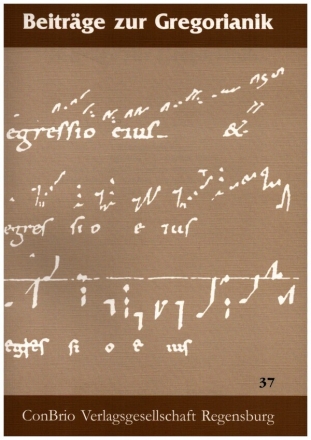 Beiträge zur Gregorianik
egressio eius &
egres si o e ius
egres si o e ius
37
ConBrio Verlagsgesellschaft Regensburg